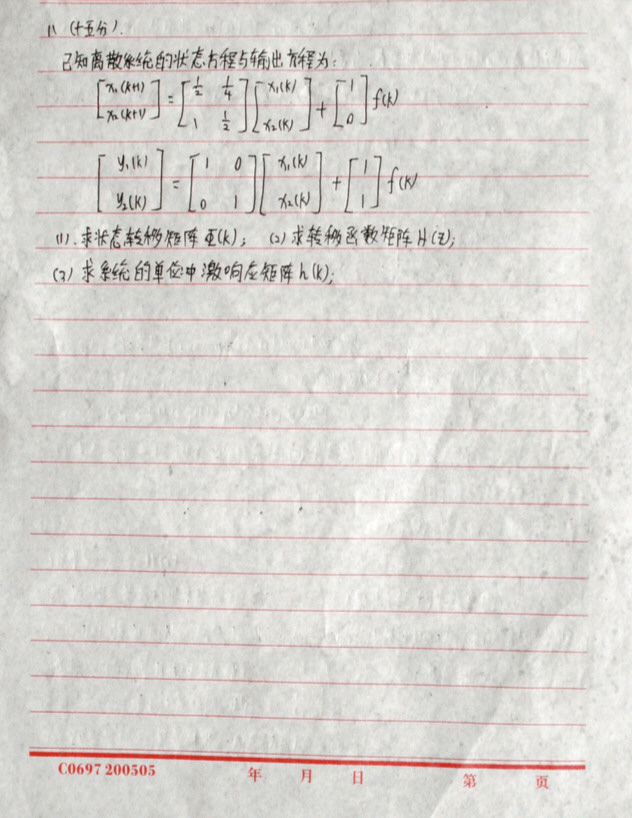 11 (十五分).
已知离散系统的状态方程与输出方程为:
[x₁(k+1) x₂(k+1)] = [1/2 1/4; 1 1/2] [x₁(k) x₂(k)] + [1 0] f(k)
[y₁(k) y₂(k)] = [1 0; 0 1] [x₁(k) x₂(k)] + [1 1] f(k)
(1).求状态转移矩阵 Φ(k); (2)求转移函数矩阵 H(z);
(3)求系统的单位冲激响应矩阵 h(k);
C0697 200505 年 月 日 第 页